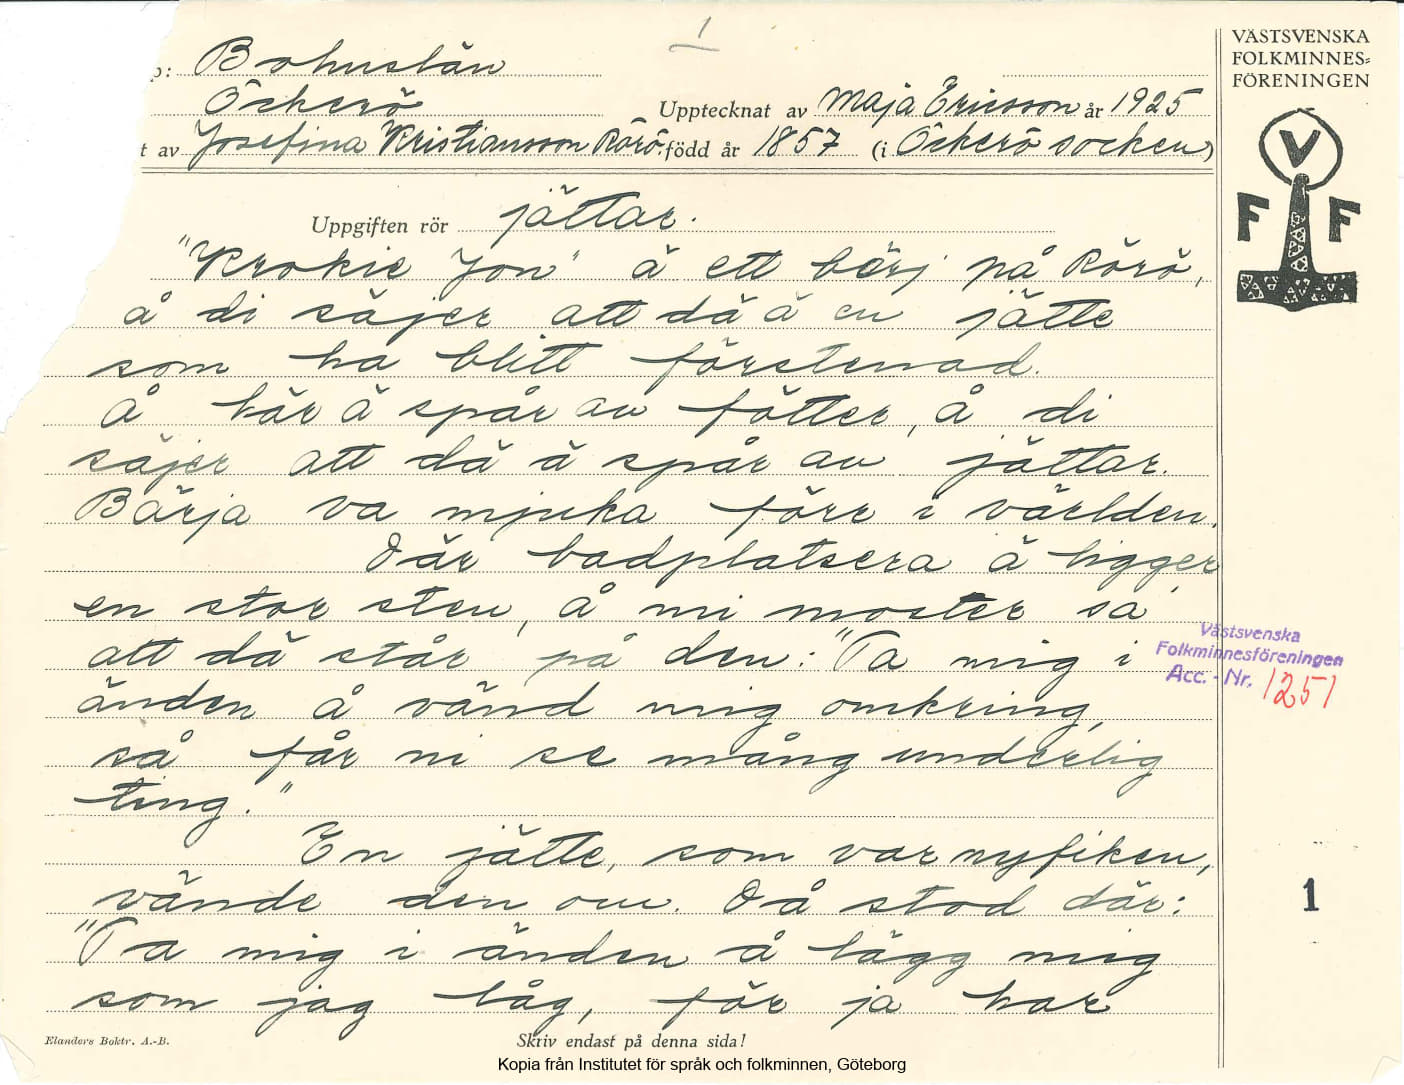 1
p: Bohuslän
Öckerö
Upptecknat av Maja Ericsson år 1925
t av Josefina Kristiansson Rörö. född år 1857 (i Öckerö socken)
VÄSTSVENSKA
FOLKMINNES=
FÖRENINGEN
V
F F
Uppgiften rör jättar.
"Krokie Jon" ä ett bärj på Rörö,
å di säjer att dä ä en jätte
som ha blitt förstenad.
Å här ä spår av fötter, å di
säjer att dä ä spår av jättar.
Bärja va mjuka förr i världen.
Där badplatsera ä ligger
en stor sten, å mi moster sa
att dä står på den: "Ta mig i
änden å vänd mig omkring,
så får ni se mång underlig
ting."
En jätte, som var nyfiken,
vände den om. Då stod där:
"Ta mig i änden å lägg mig
som jag låg, för ja har
Västsvenska
Folkminnesföreningen
Acc.-Nr. 1251
1
Elanders Boktr. A.-B.
Skriv endast på denna sida!
Kopia från Institutet för språk och folkminnen, Göteborg